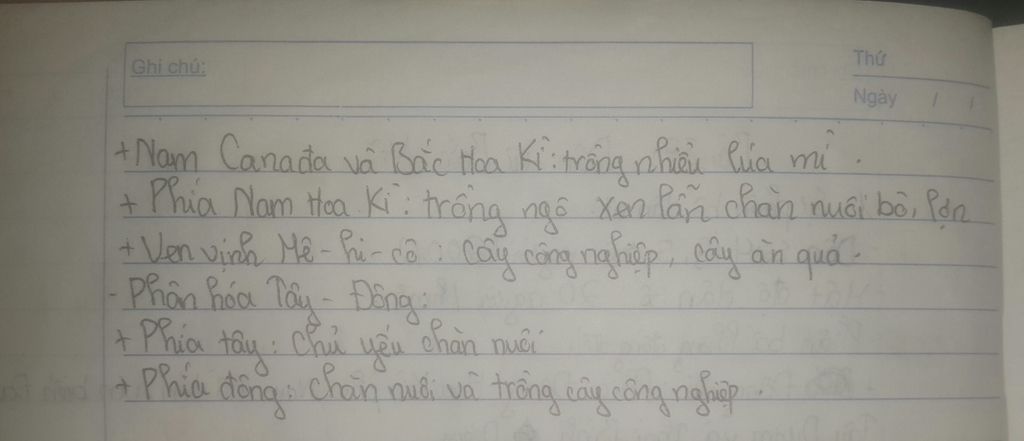 Ghi chú:
Thứ
Ngày / /
+ Nam Canađa và Bắc Hoa Kì: trồng nhiều lúa mì.
+ Phía Nam Hoa Kì: trồng ngô xen lẫn chăn nuôi bò, lợn
+ Ven vịnh Mê-hi-cô: cây công nghiệp, cây ăn quả.
- Phân hóa Tây - Đông:
+ Phía tây: chủ yếu chăn nuôi
+ Phía đông: chăn nuôi và trồng cây công nghiệp.